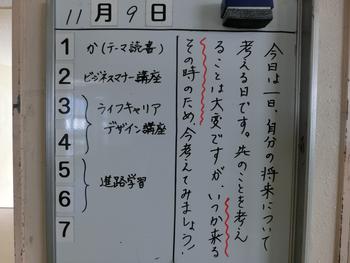 11月9日
1 か(テーマ読書)
2 ビジネスマナー講座
3 ライフキャリア
4 デザイン講座
5
6 進路学習
7
今日は一日、自分の将来について
考える日です。先のことを考え
ることは大変ですが、いつか来る
その時のため、今考えてみましょう!